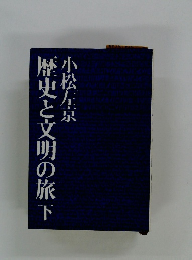 小松左京
歴史と文明の旅 下